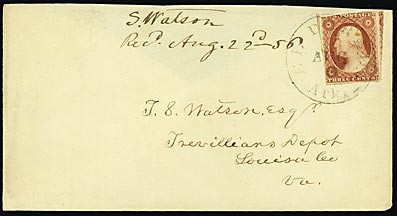 S. Watson
Recd. Aug. 22d-56
AUG
Ark
THREE CENTS
T. S. Watson, Esqr.
Trevillians Depot
Louisa Co
Va.